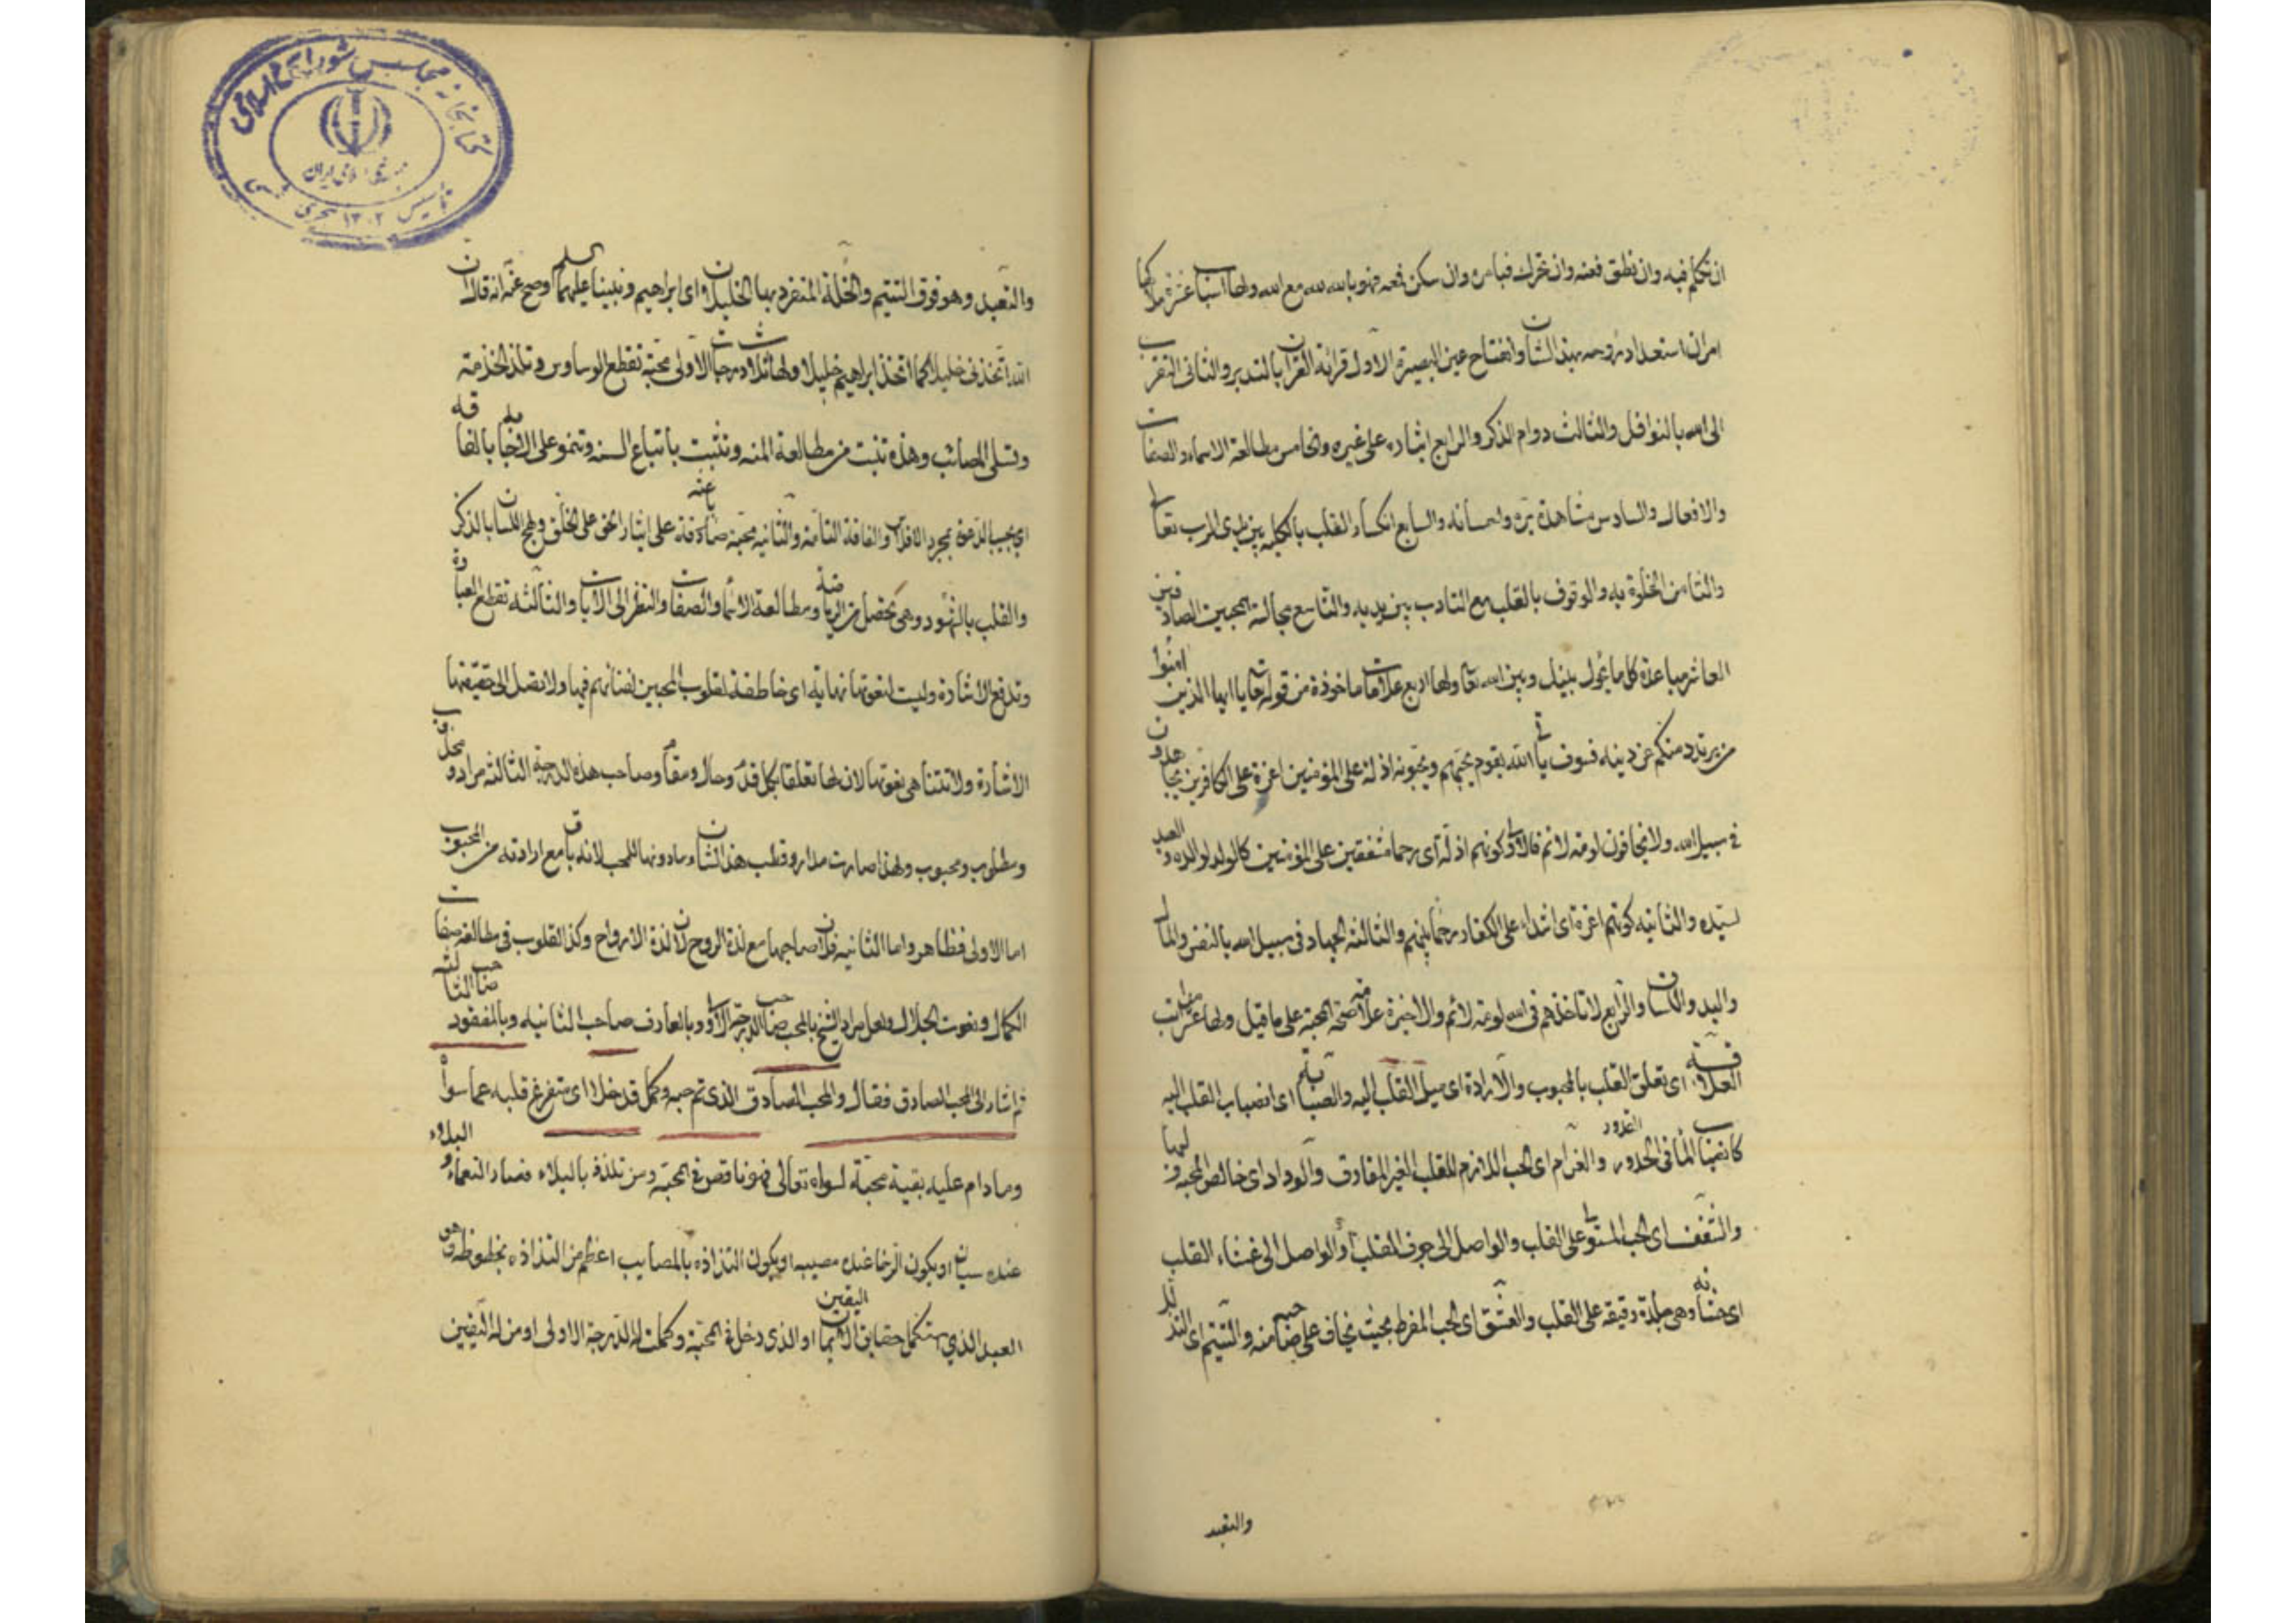 ان تكلم فيه وان نطق فعنه وان تحرك فبامره وان سكن فمعه فهو بالله لله مع الله ولها اسباب عشرة ملاكها
امران استعداد روحه بهذا الشان وانفتاح عين البصيرة الاول قرائة القران بالتدبر والثانى التقرب
الى الله بالنوافل والثالث دوام الذكر والرابع ايثاره على غيره والخامس مطالعة الاسماء والصفات
والافعال والسادس مشاهدة بره واحسانه والسابع انكسار القلب بالكلية بين يدى الرب تعالى
والثامن الخلوة به والوقوف بالقلب مع التادب بين يديه والتاسع مجالسة المحبين الصادقين
العاشر مباعدة كل ما يحول بينك وبين الله تعالى ولها اربع علامات ماخوذة من قوله تعالى يا ايها الذين امنوا
من يرتدد منكم عن دينه فسوف ياتى الله بقوم يحبهم ويحبونه اذلة على المؤمنين اعزة على الكافرين يجاهدون
فى سبيل الله ولا يخافون لومة لائم فالاولى كونهم اذلة اى رحما مشفقين على المؤمنين كالولد لوالده والعبد
لسيده والثانية كونهم اعزة اى اشداء على الكفار رحماء بينهم والثالثة الجهاد فى سبيل الله بالنفس والمال
واليد واللسان والرابع لا تاخذهم فى الله لومة لائم والاخيرة علامة صحة المحبة على ما قيل ولها عشر مراتب
العلاقة اى تعلق القلب بالمحبوب والارادة اى ميل القلب اليه والصبابة اى انصباب القلب اليه
كانصباب الماء فى الحدور والغرام اى الحب اللازم للقلب الغير المفارق والوداد اى خالص المحبة ولبها
والشغف اى الحب المستولى على القلب والواصل الى جوف القلب او الواصل الى غشاء القلب
اى وهى جلدة رقيقة على القلب والعشق اى الحب المفرط بحيث يخاف على صاحبه منه والتتيم اى التذلل
والتعبد
والتعبد وهو فوق التتيم والخلة المنفرد بها الخليلان اى ابراهيم ونبينا عليهما السلم وصح عنه انه قال ان
الله اتخذنى خليلا كما اتخذ ابراهيم خليلا ولها ثلاث درجات الاولى محبة تقطع الوساوس وتلذ الخدمة
وتسلى المصائب وهذه تنبت من مطالعة المنه وتثبت باتباع السنه وتنمو على الاجابة بالفاقه
اى بمجرد الافلاس والفاقة التامة والثانيه محبة باعثة على ايثار الحق على الخلق ولهج اللسان بالذكر
والقلب بالشهود وهى تحصل من الرياضة ومطالعة الاسماء والصفات والنظر الى الايات والثالثه تقطع العبارة
وتدفع الاشارة وليست لنعوتها نهاية اى خاطفة لقلوب المحبين لفنائهم فيها ولا تصل الى حقيقتها
الاشارة ولا تتناهى نعوتها لان لها تعلقا بكل قدم وحال ومقام وصاحب هذه الدرجة الثالثة مراد ومجذوب
ومطلوب ومحبوب ولهذا صارت مدار وقطب هذا الشان ومادونها للمحب لانه باق مع ارادته من المحبوب
اما الاولى فظاهر واما الثانيه فلان صاحبها مع لذة الروح لان لذة الارواح وكذا القلوب فى مطالعة صفات
الكمال ونعوت الجلال ولعل مراد الشيخ بالمحب صاحب الدرجة الاولى وبالعارف صاحب الثانيه وبالمفقود صاحب الثالثه
ثم اشار الى المحب الصادق فقال والمحب الصادق الذى تم حبه وكمل قد خلا اى متفرغ قلبه عما سواه
ومادام عليه بقية محبة لسواه تعالى فهو ناقص فى المحبة ومن تلذذ بالبلاء فصار النعماء والبلاء
عنده سيان او يكون الرخا عنده مصيبه او يكون التذاذه بالمصايب اعظم من التذاذه بحظوظه وهو
العبد الذى استكمل حقايق الايمان اليقين او الذى دخل فى المحبة وكملت له الدرجة الاولى او من له اليقين
كتابخانه مجلس شوراى اسلامى
جمهورى اسلامى ايران
تاسيس ١٣٠٢ هجرى شمسى